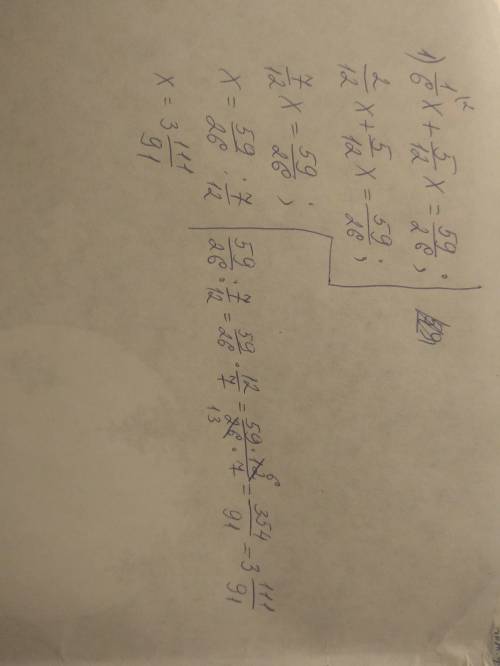 1) 1/6\2 x + 5/12 x = 59/26 ;
2/12 x + 5/12 x = 59/26 ;
7/12 x = 59/26 ;
x = 59/26 : 7/12
x = 3 111/91
59/26 : 7/12 = 59/26 · 12/7 = 59 · 12 6/26 13 · 7 = 354/91 = 3 111/91